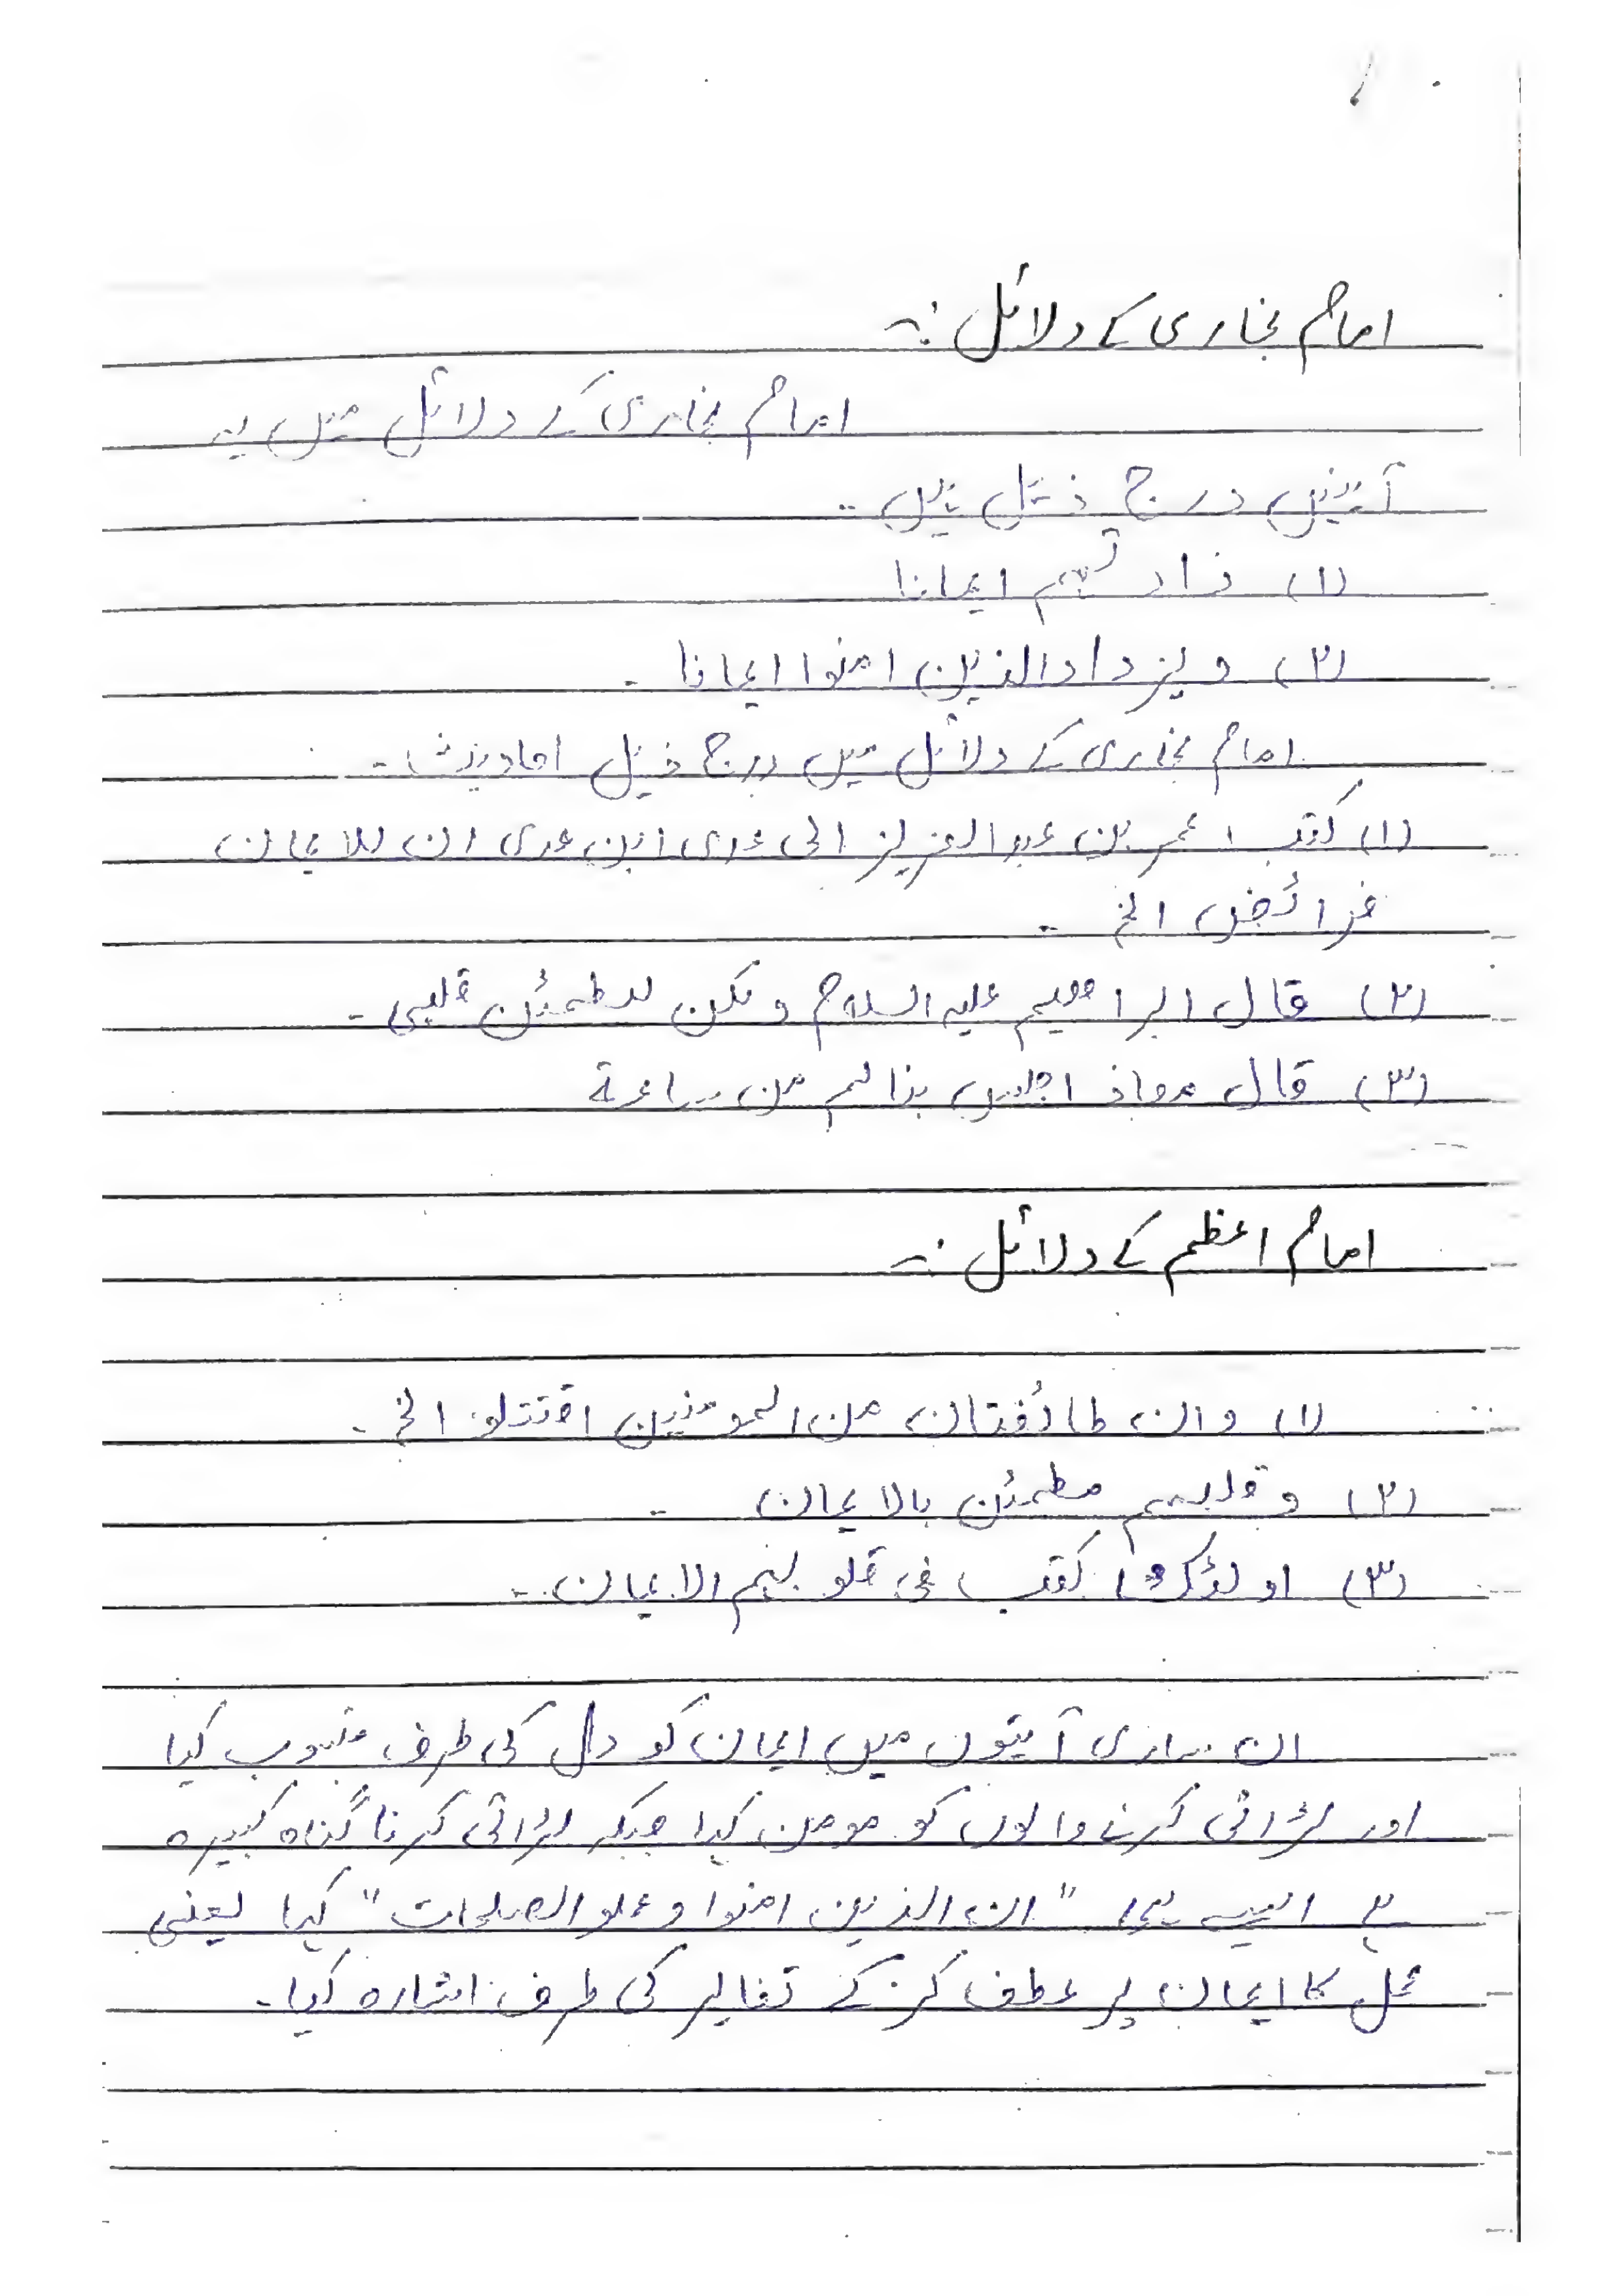 امام بخاری کے دلائل :-
امام بخاری کے دلائل میں یہ
آیتیں درج ذیل ہیں ۔
(۱) زادتہم ایمانا
(۲) ویزدادالذین امنوا ایمانا ۔
امام بخاری کے دلائل میں درج ذیل احادیث ۔
(۱) کتب عمر بن عبد العزیز الی عدی ابن عدی ان للایمان
فرائض الخ ۔
(۲) قال ابراھیم علیہ السلام ولکن لیطمئن قلبی ۔
(۳) قال معاذ اجلس بنا من ساعة
امام اعظم کے دلائل :-
(۱) وان طائفتان من المومنین اقتتلو الخ ۔
(۲) وقلبہم مطمئن بالایمان ۔
(۳) اولئک کتب فی قلوبہم الایمان ۔
ان ساری آیتوں میں ایمان کو دل کی طرف منسوب کیا
اور لڑائی کرنے والوں کو مومن کہا جبکہ لڑائی کرنا گناہ کبیرہ
ہے "ان الذین امنوا وعملو الصلحات" کہا یعنی
عمل کا ایمان پر عطف کرکے تغایر کی طرف اشارہ کیا ۔